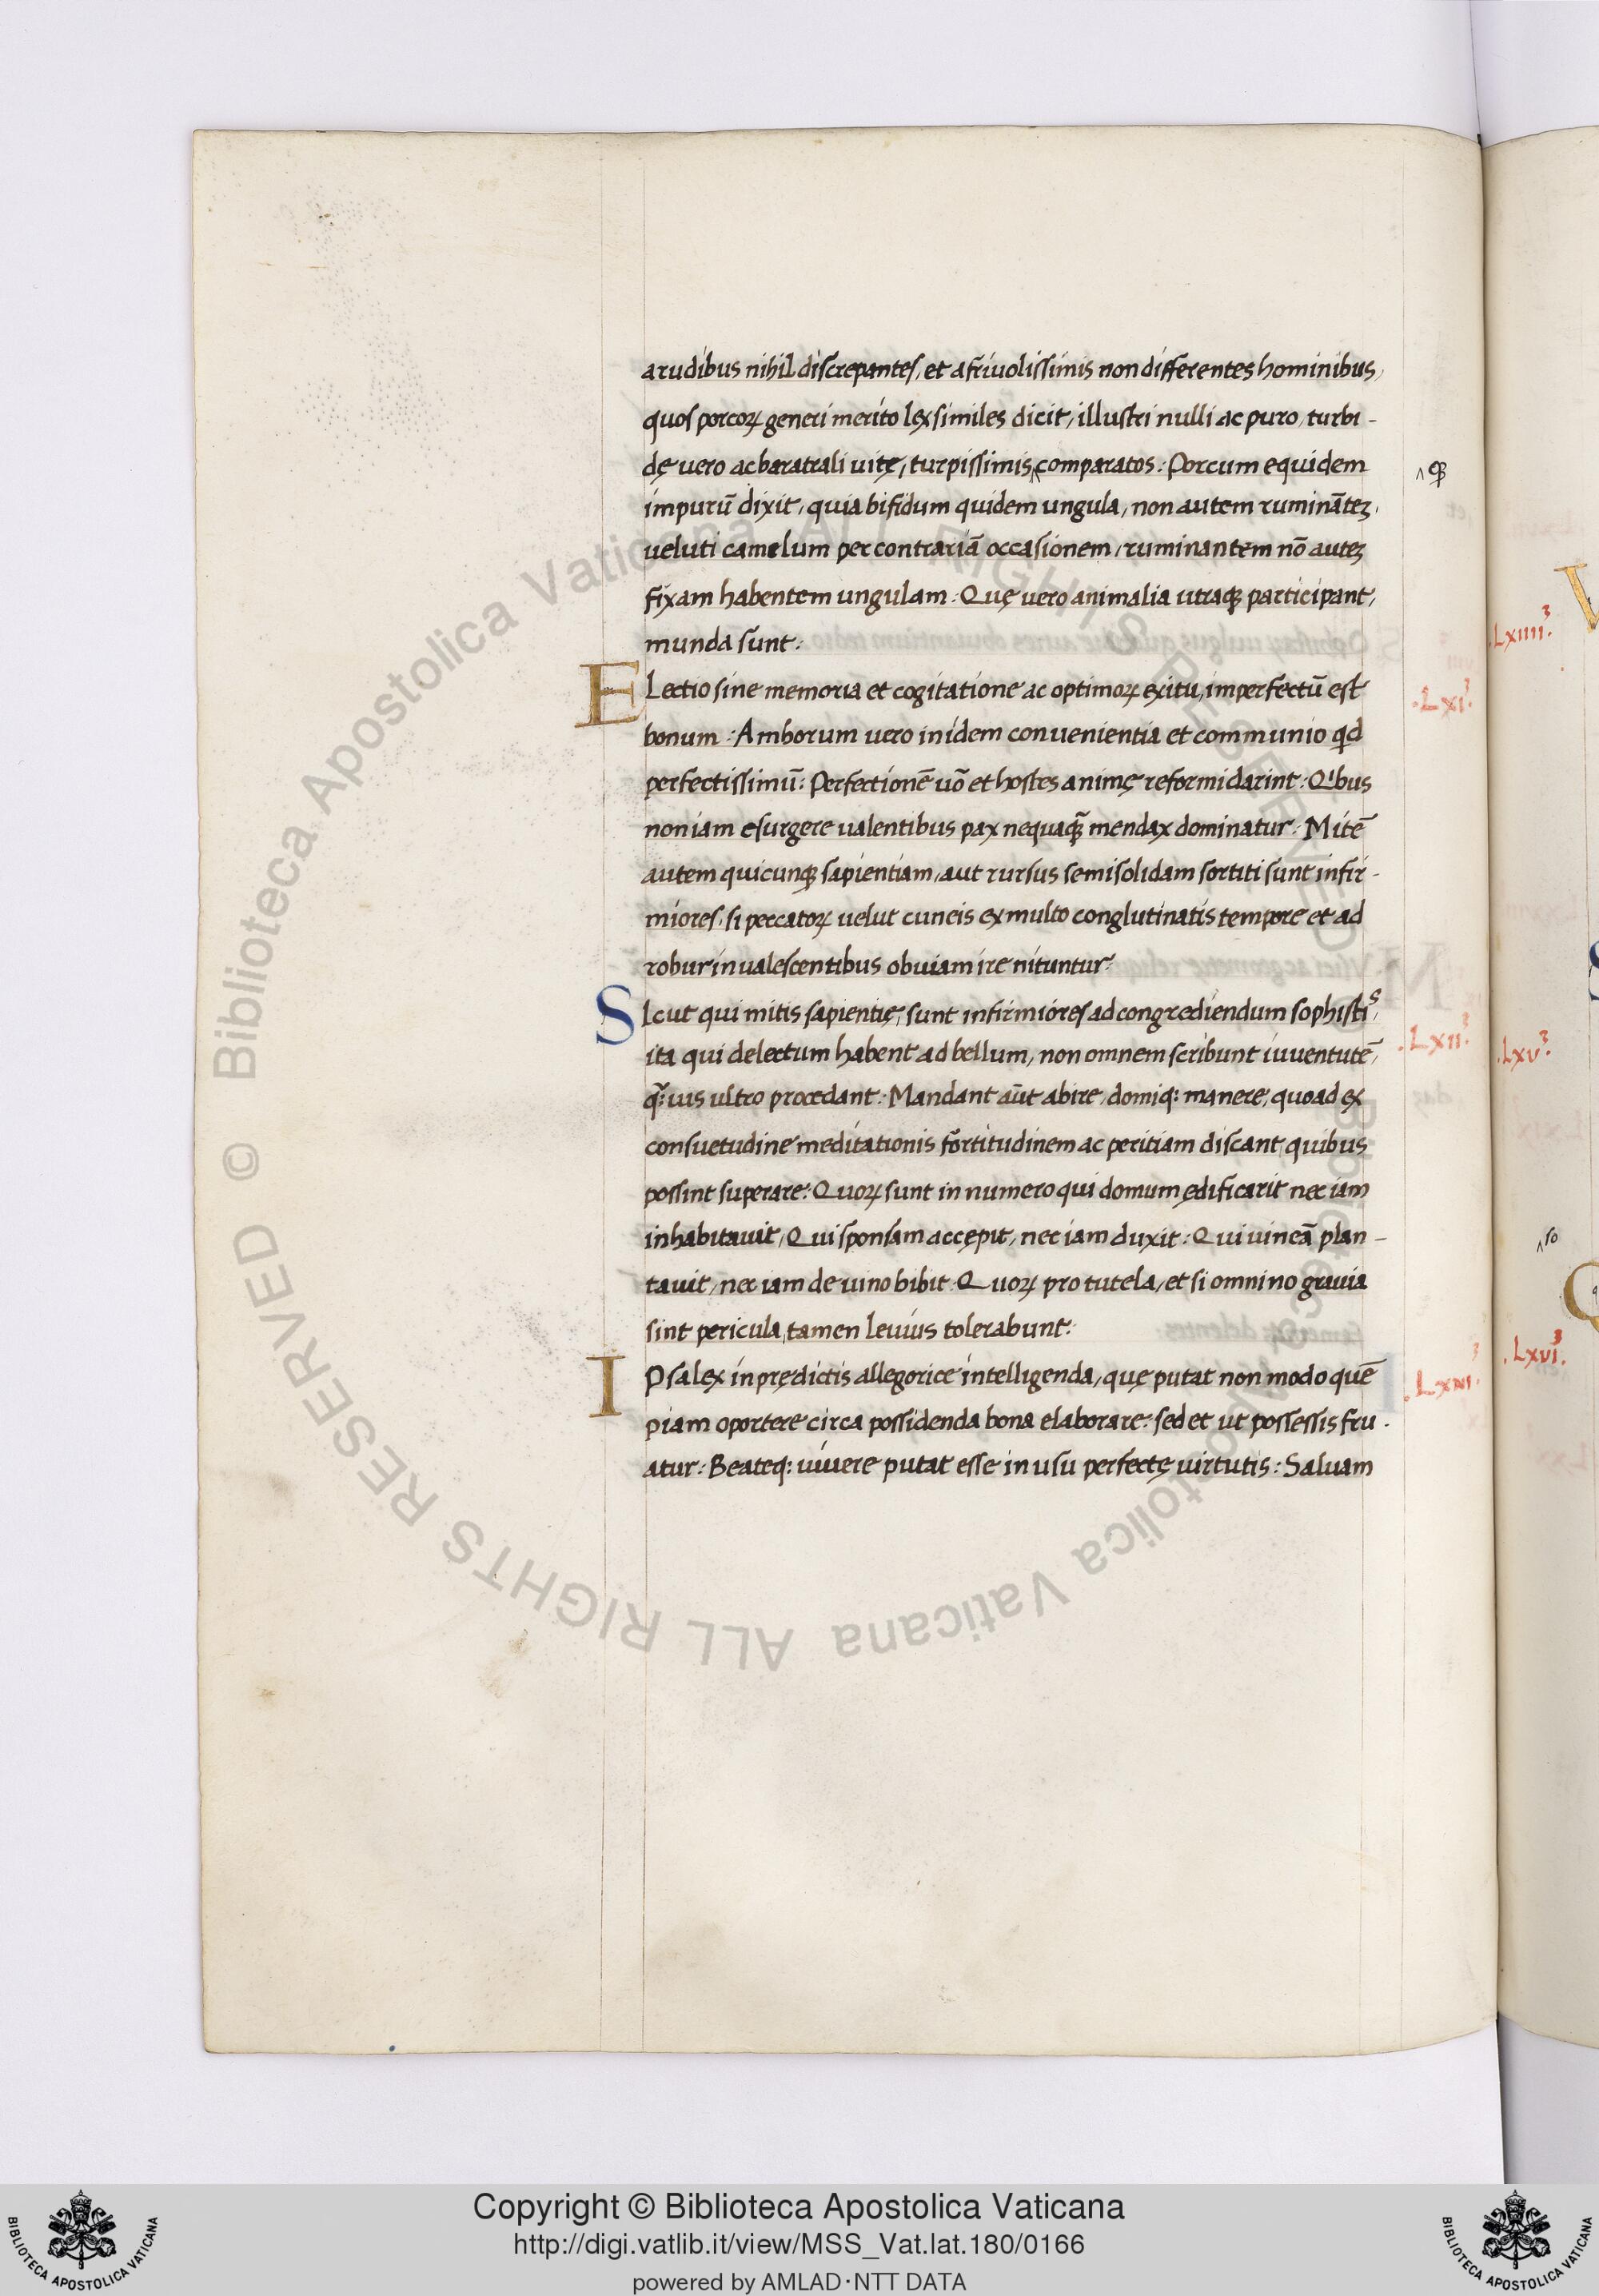 a rudibus nihil discrepantes, et a friuolissimis non differentes hominibus,
quos porcoꝝ generi merito lex similes dicit, illustri nulli ac puro, turbi-
dę vero ac baratrali uitę, turpissimis^comparatos: Porcum equidem
^eꝙ
impurū dixit, quia bifidum quidem ungula, non autem rumināteꝫ,
veluti camelum per contrariā occasionem, ruminantem nō auteꝫ
fixam habentem ungulam: Quę vero animalia utraqꝫ participant,
munda sunt:
ELectio sine memoria et cogitatione ac optimoꝝ exitu, imperfectū est
.Lxi.
bonum: Amborum vero in idem convenientia et communio qd
perfectissimū: Perfectionē uō et hostes animę reformidarint: Qibus
non iam esurgere ualentibus pax nequaꝗ̄ mendax dominatur: Mitē
autem quicunqꝫ sapientiam, aut rursus semisolidam sortiti sunt infir-
miores, si peccatoꝝ velut cuneis ex multo conglutinatis tempore et ad
robur invalescentibus obuiam ire nituntur:
SIcut qui mitis sapientię, sunt infirmiores ad congrediendum sophistis,
.Lxii.
ita qui delectum habent ad bellum, non omnem scribunt iuventutē,
q̄:uis ultro procedant: Mandant aūt abire, domiq: manere, quoad ex
consuetudine meditationis fortitudinem ac peritiam discant quibus
possint superare: Quoꝝ sunt in numero qui domum ędificarit nec iam
inhabitauit, Qui sponsam accępit, nec iam duxit: Qui vineā plan-
tavit, nec iam de vino bibit: Quoꝝ pro tutela, et si omnino gravia
sint pericula, tamen levius tolerabunt:
IPsa lex in prędictis allegorice intelligenda, quę putat non modo quē
.Lxiii.
piam oportere circa possidenda bona elaborare: sed et ut possessis fru.
atur: Beateq: vivere putat esse in usu perfectę virtutis: Saluam
.Lxiiii.
.Lxv.
^so
.Lxvi.
© Biblioteca Apostolica Vaticana ALL RIGHTS RESERVED
Copyright © Biblioteca Apostolica Vaticana
http://digi.vatlib.it/view/MSS_Vat.lat.180/0166
powered by AMLAD·NTT DATA
BIBLIOTECA APOSTOLICA VATICANA
BIBLIOTECA APOSTOLICA VATICANA